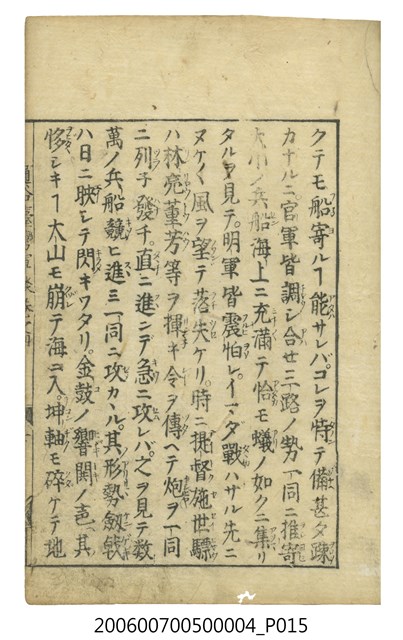 クテモ船寄ルヿ能サレバコレヲ恃テ備甚タ疎
カナルニ官軍皆調シ合セ三路ノ勢一同ニ推寄
大小ノ兵船海上ニ充滿テ恰モ蟻ノ如クニ集リ
タルヲ見テ明軍皆震怕レイマダ戰ハザル先ニ
ヌケ〱風ヲ望テ落失ケリ時ニ提督施世驃
ハ林亮董芳等ヲ揮キ令ヲ傳ヘテ炮ヲ一同
ニ列子發チ直ニ進ンデ急ニ攻レバ之ヲ見テ数
萬ノ兵船競ヒ進ミ一同ニ攻カヽル其形勢劔戟
ハ日ニ映シテ閃キワタリ金鼓ノ響閧ノ声其
夥シキヿ大山モ崩テ海ニ入坤軸モ碎ケテ地
200600700500004_P015